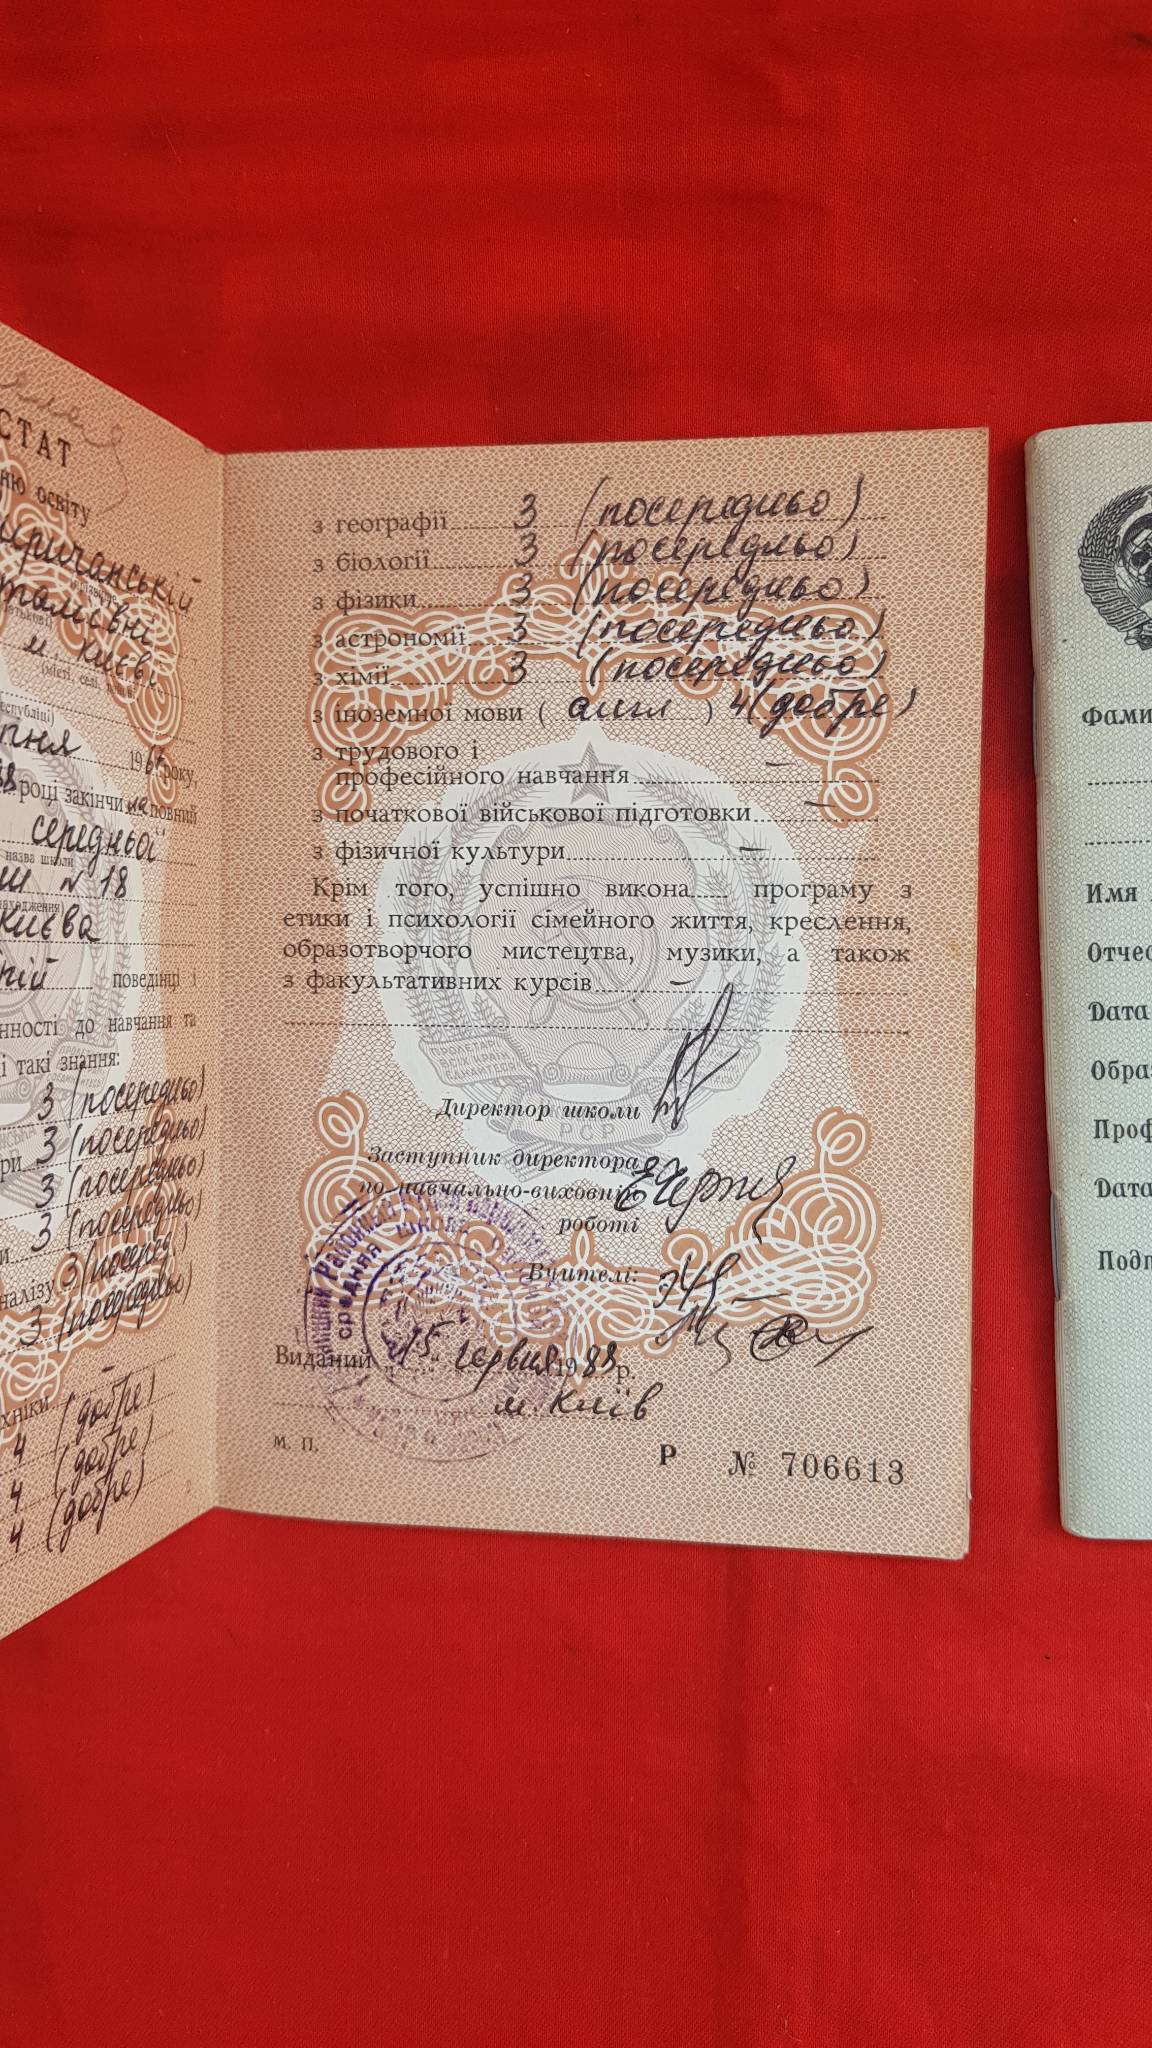 СТАТ
ню освіту
м. Києві
(місті, селі, районі)
республіці)
пня 196 року,
88 році закінчила повний
середньої
назва школи
ш N 18
находження)
Києва
ній поведінці і
нності до навчання та
і такі знання:
3 (посередньо)
ри 3 (посередньо)
3 (посередньо)
и 3 (посередньо)
налізу 3 (посеред.)
3 (посередньо)
хніки –
4 (добре)
4 (добре)
4 (добре)
2
з географії 3 (посередньо)
з біології 3 (посередньо)
з фізики 3 (посередньо)
з астрономії 3 (посередньо)
з хімії 3 (посередньо)
з іноземної мови ( англ ) 4 (добре)
з трудового і
професійного навчання –
з початкової військової підготовки –
з фізичної культури –
Крім того, успішно викона програму з
етики і психології сімейного життя, креслення,
образотворчого мистецтва, музики, а також
з факультативних курсів –
Директор школи
Заступник директора
по навчально-виховній
роботі
Вчителі:
Виданий 15 червня 1988 р.
м. Київ
М. П.
Р № 706613
Фами
Имя
Отчес
Дата
Обра
Проф
Дата
Подп